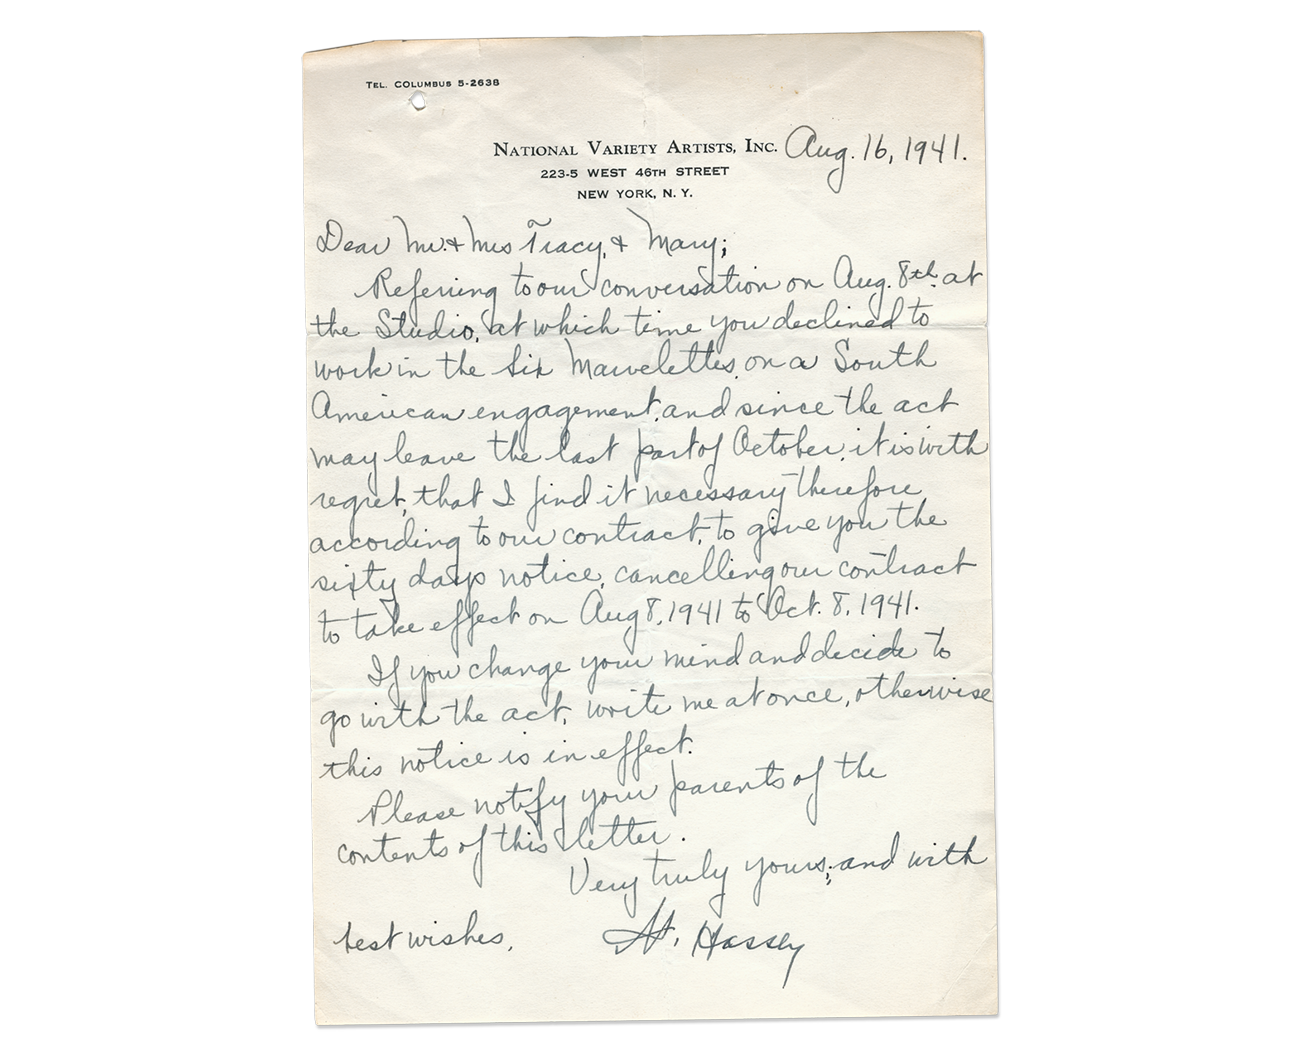 TEL. COLUMBUS 5-2638
NATIONAL VARIETY ARTISTS, INC.
Aug. 16, 1941.
223-5 WEST 46TH STREET
NEW YORK, N. Y.
Dear Mr. & Mrs Tracy, & Mary;
Referring to our conversation on Aug. 8th. at
the Studio, at which time you declined to
work in the Six Marvelettes, on a South
American engagement, and since the act
may leave the last part of October, it is with
regret, that I find it necessary therefore,
according to our contract, to give you the
sixty days notice, cancelling our contract
to take effect on Aug 8, 1941 to Oct. 8, 1941.
If you change your mind and decide to
go with the act, write me at once, otherwise
this notice is in effect.
Please notify your parents of the
contents of this letter.
Very truly yours, and with
best wishes,
Hassey